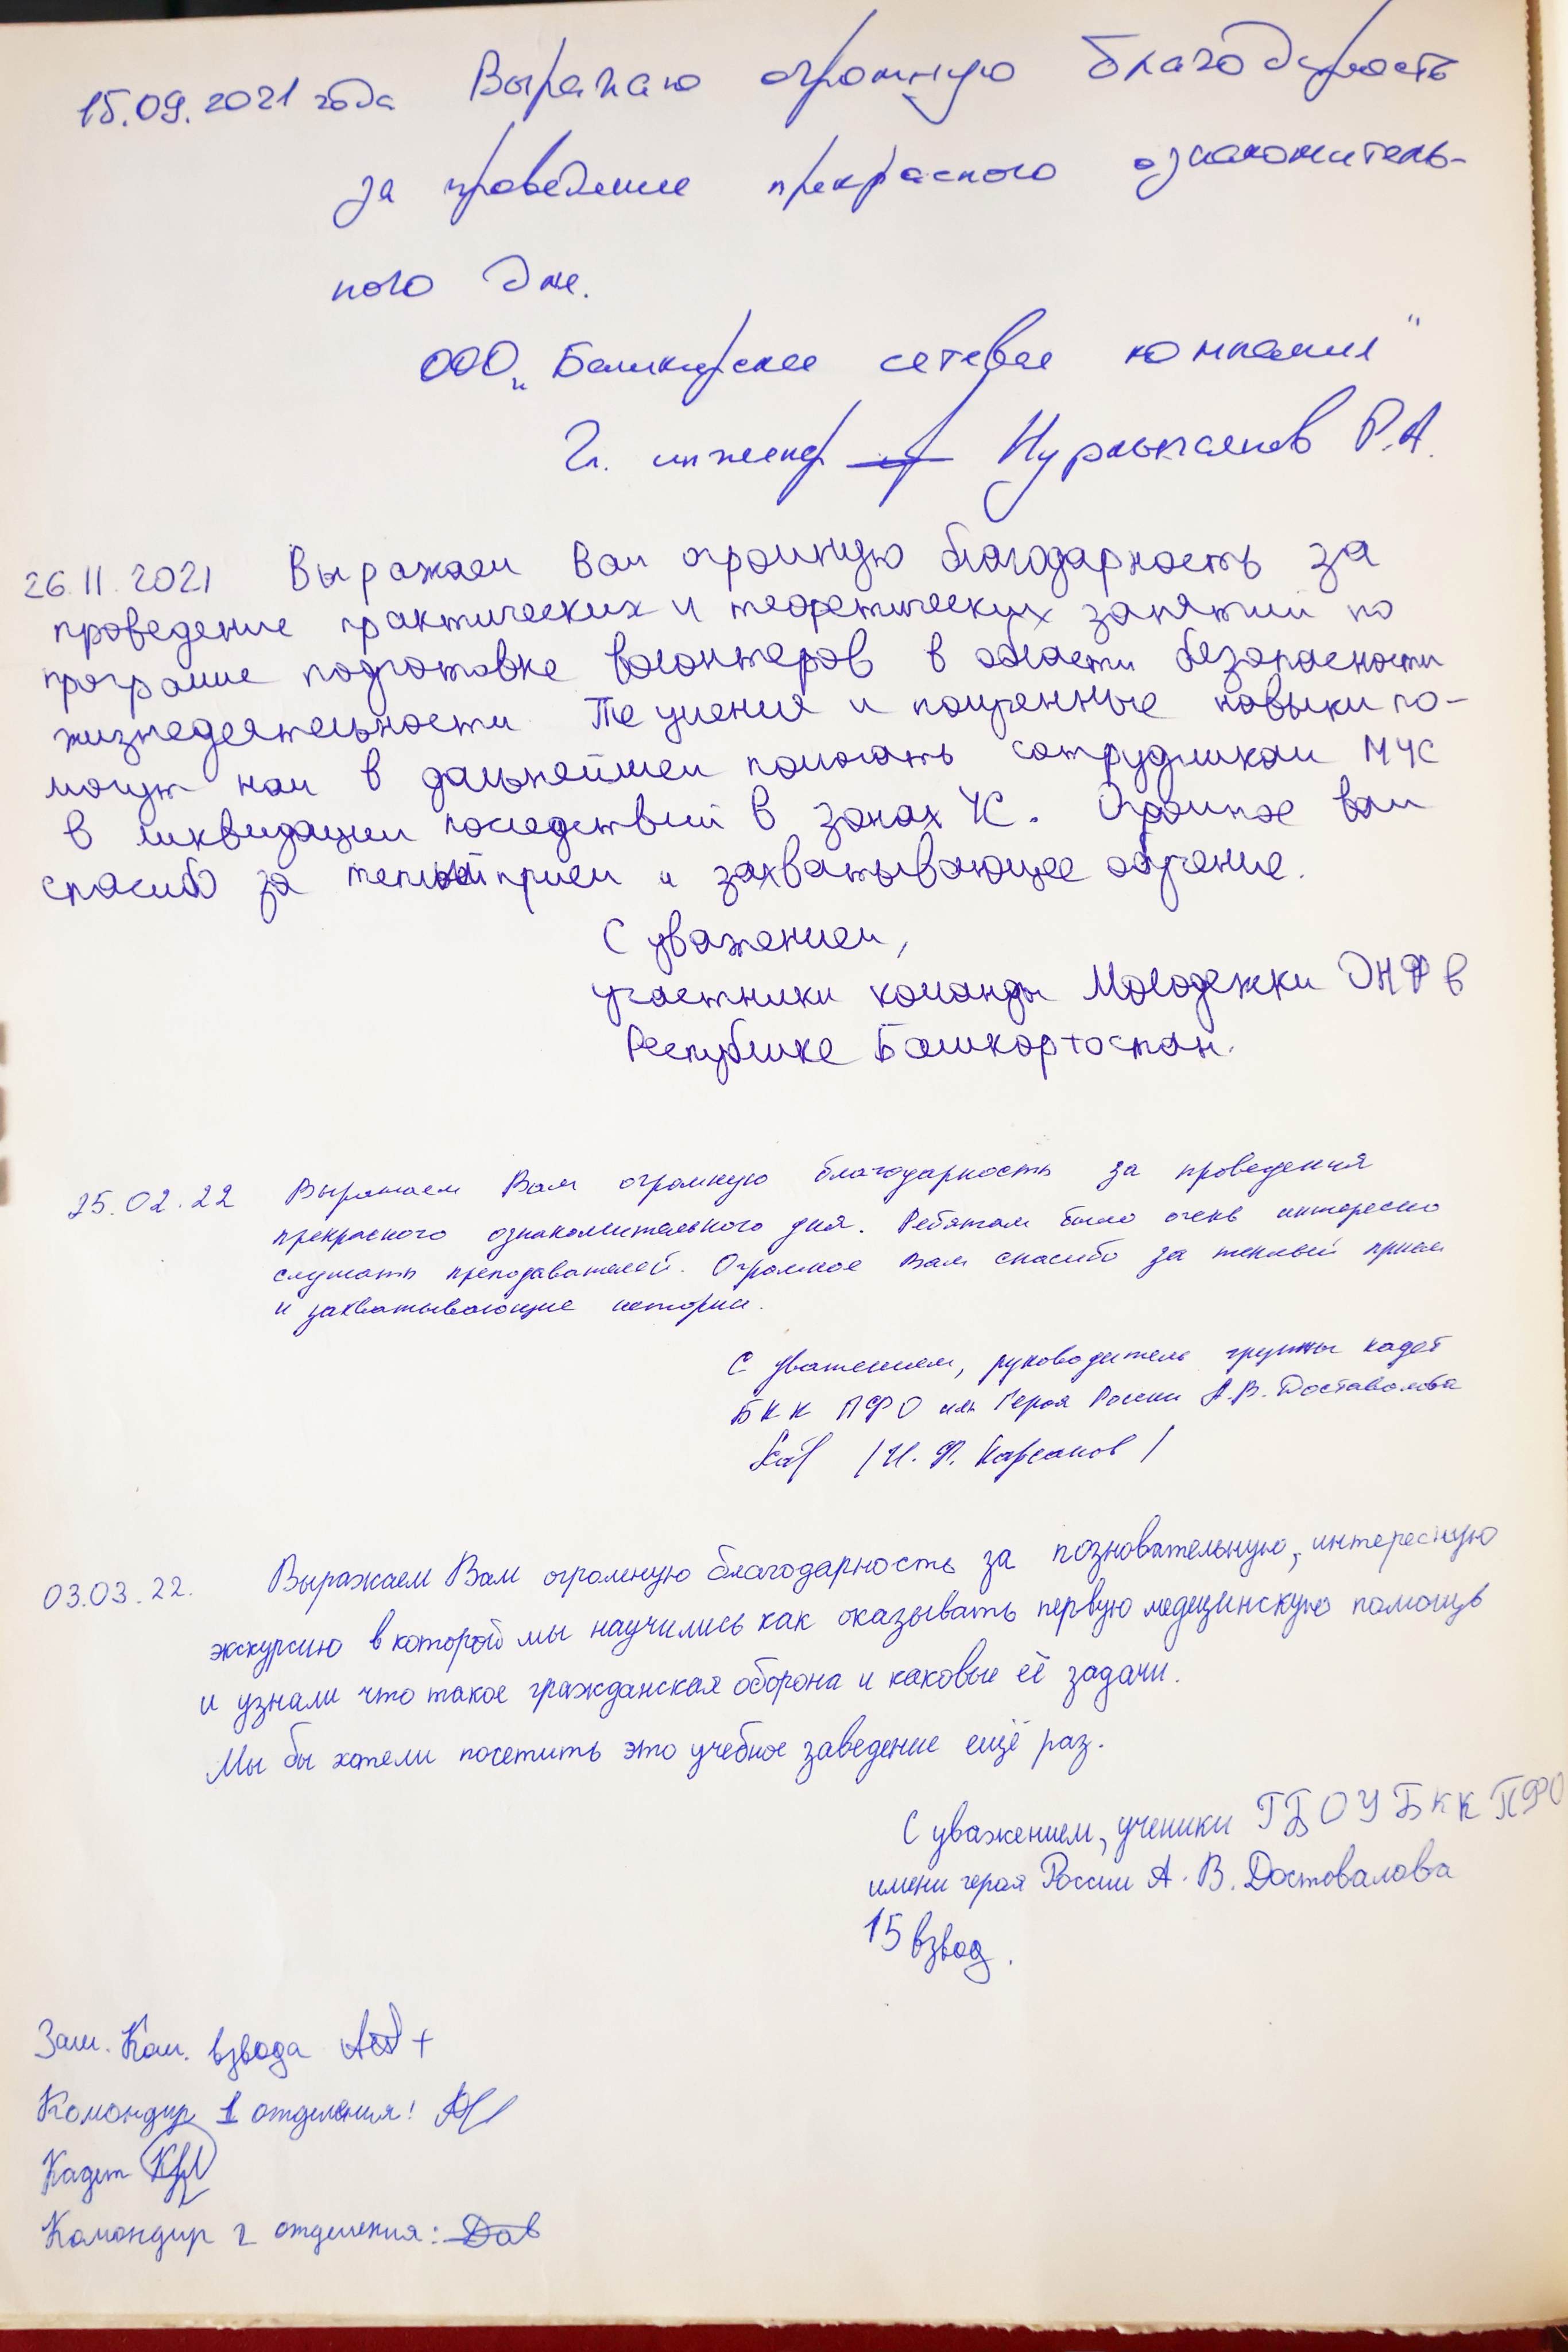 15.09.2021 года Выражаю огромную благодарность
за проведение прекрасного ознакомитель-
ного дня.
ООО „Башкирская сетевая компания"
Гл. инженер Нурмухаметов Р.А.
26.11.2021 Выражаем Вам огромную благодарность за
проведение практических и теоретических занятий по
программе подготовке волонтеров в области безопасности
жизнедеятельности. Те умения и полученные навыки по-
могут нам в дальнейшем помогать сотрудникам МЧС
в ликвидации последствий в зонах ЧС. Огромное вам
спасибо за теплый прием и захватывающее обучение.
С уважением,
участники команды Молодежки ОНФ в
Республике Башкортостан.
25.02.22 Выражаем Вам огромную благодарность за проведения
прекрасного ознакомительного дня. Ребятам было очень интересно
слушать преподавателей. Огромное Вам спасибо за теплый прием
и захватывающие истории.
С уважением, руководитель группы кадет
БКК ПФО им. Героя России А.В. Доставалова
/И. Ф. /
03.03.22. Выражаем Вам огромную благодарность за позновательную, интересную
экскурсию в которой мы научились как оказывать первую медицинскую помощь
и узнали что такое гражданская оборона и каковые её задачи.
Мы бы хотели посетить это учебное заведение ещё раз.
С уважением, ученики ГБОУ БКК ПФО
имени героя России А. В. Достовалова
15 взвод.
Зам. Ком. взвода
Командир 1 отделения:
Кадет
Командир 2 отделения: